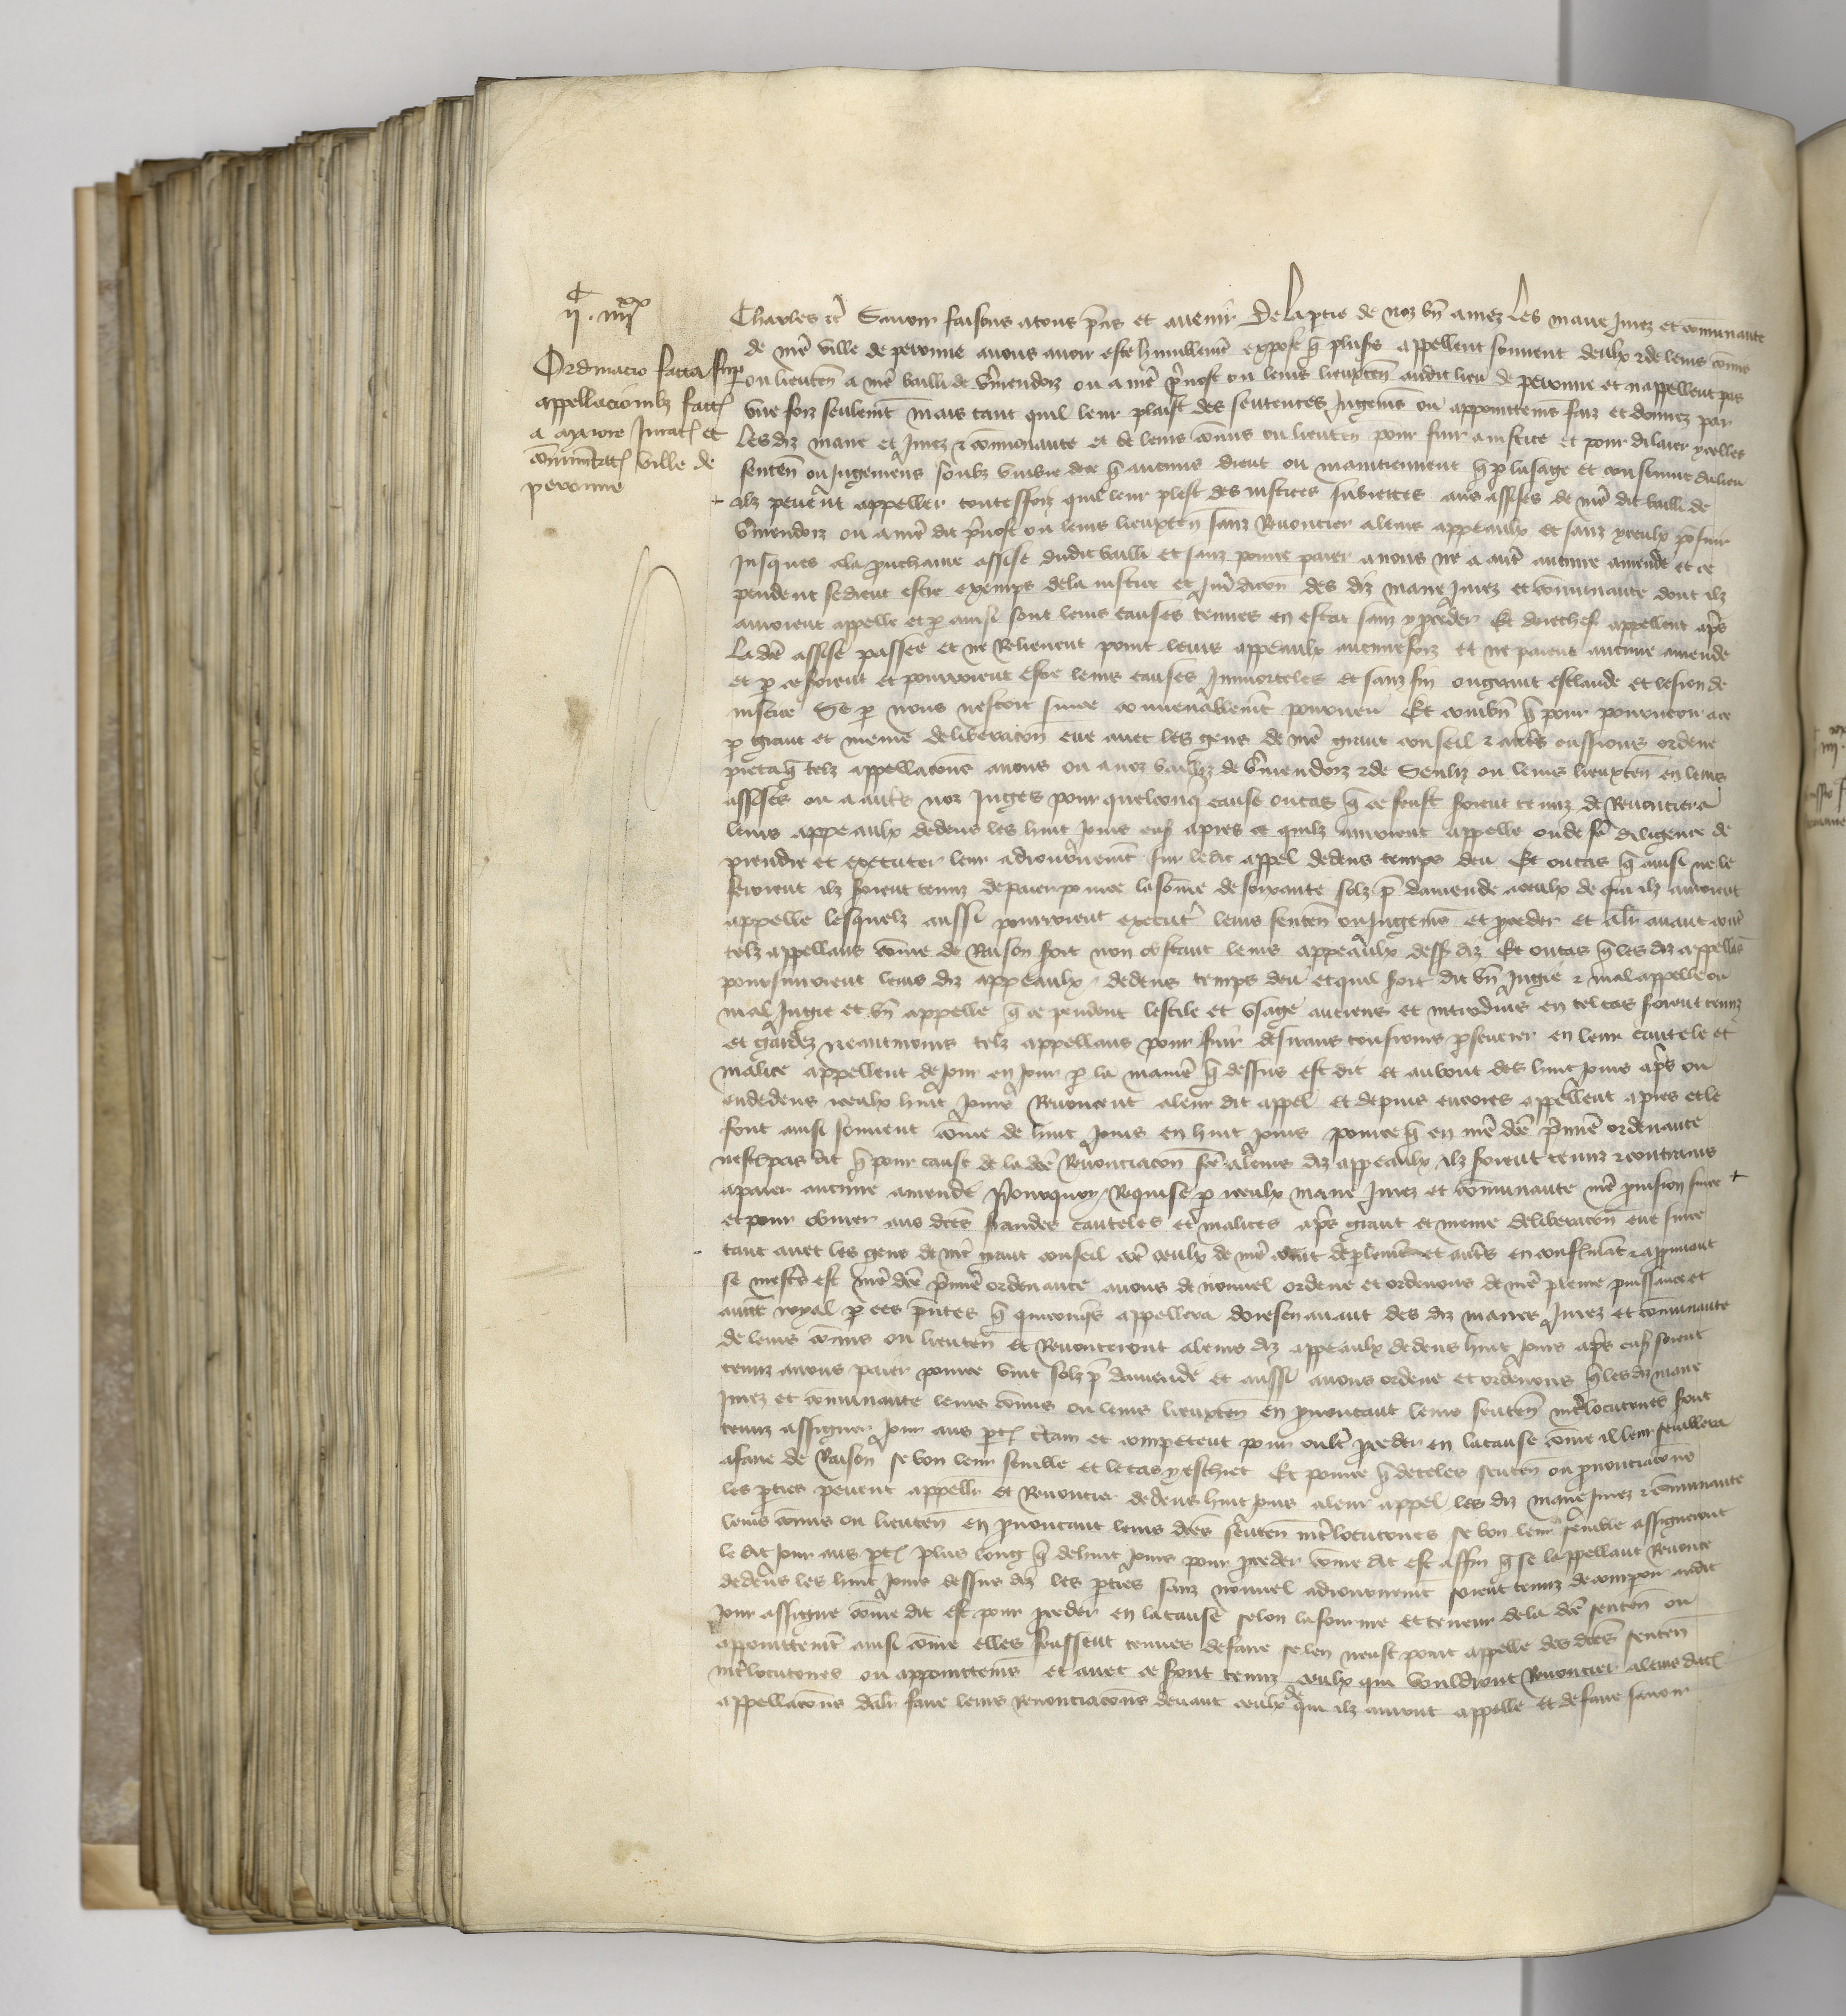 c xx
ij . iiij
Ordinacio facta sup
appellacionibz factis
a maiore Juratis et
cōmunitatis ville de
peronne
Charles etc Sauoir faisons a tous p̄ns et auenir De la ptie de noz bn̄ amez Les maire Jurez et cōmunaute
de nr̄e ville de peronne a nous auoir este humblemēt expose q̄ plusrs appellent souuent deulx & de leurs cōmis
ou lieuten̄ a nr̄e bailli de v̄mendoiz ou a nr̄e p̄uost ou leurs lieuxten̄ audit lieu de peronne et nappellent pas
vne foiz seulemt̄ mais tant quil leur plaist des sentences Jugemēs ou appointtemēs faiz et donnez par
Les diz maire et Jurez & cōmunaute et de leurs cōmis ou lieuten̄ pour fuir a justice et pour dilaier ycelles
senten̄ ou Jugemens soubz vmbre de ce q̄ aucuns dient ou maintiennent q̄ p lusage et coustume du lieu
ilz peuent appeller toutesfoiz quil leur plest des justices subiettes aus assises de nr̄e dit bailli de
v̄mendoiz ou a nr̄e dit p̄uost ou leurs lieuxten̄ sanz Renoncier a leurs appeaulx et sanz yceulx po'suir
Jusques a la prouchaine assise dudit bailli et sanz pource paier a nous ne a autr̄ aucune amende et ce
pendent se dient estre exemps de la justice et Juridicōn des diz maire Jurez et cōmunaute dont ilz
auroient appelle et p ainsi sont leurs causes tenues en estat sanz y pceder Et derechief appellent ap̄s
La dc̄e assise passee et ne Relieuent point leurs appeaulx aucunefoiz et ne paient aucune amende
et p ce soient et pourroient estre leurs causes Jmmorteles et sanz fin ou grant esclande et lesion de
justice Se p nous nestoit sur ce conuenablemēt pourueu Et combn̄ q̄ pour pourueoir a ce
p grant et meure deliberacōn eue auec les gens de nr̄e grant conseil & autrs eussions ordene
pieca q̄ telz appellacōns a nous ou a noz bailliz de v̄mendoiz & de Senliz ou leurs lieuxten̄ en leurs
assises ou a autrs noz Juges pour quelconq̄ cause ou cas q̄ ce feust soient tenuz de Renoncier a
leurs appeaulx dedens les huit jours ens apres ce quilz auroient appelle ou de fē diligence de
prendre et executer leur adiournemēt sur ledit appel dedens temps deu Et ou cas q̄ ainsi ne le
feroient ilz soient tenuz de paier pour ce la sōme de soixante solz p̄ damende a ceulx de qui ilz auroient
appelle lesquelz aussi pourroient execut' leurs senten̄ ou Jugemēs et pceder et aler auant cont̄
telz appellans cōme de Raison soit non obstant leurs appeaulx dess diz Et ou cas q̄ les diz appellās
poursuiuroient leurs diz appeaulx dedens temps deu et quil soit dit bn̄ Jugie & mal appelle ou
mal Jugie et bn̄ appelle q̄ ce pendent lestile et vsage anciens et introduis en tel cas soient tenuz
et gardez neantmoins telz appellans pour fuir desirans tousiours pseuerer en leur cautele et
malice appellent de jour en jour p la manie q̄ dessus est dit et au bout des huit jours ap̄s ou
en dedens iceulx huit jours Renoncent a leur dit appel et depuis encores appellent apres et le
font ainsi souuent cōme de huit jours en huit jours pource q̄ en nr̄e dc̄e p̄miē ordenance
nest pas dit q̄ pour cause de la dc̄e Renonciacōn fc̄e a leurs diz appeaulx ilz soient tenuz & contrains
a paier aucune amende Pourquoy Requise p iceulx maire Jurez et cōmunaute nr̄e puision sur ce
et pour obuier aus dc̄es fraudes cauteles et malices ap̄s grant et meure deliberacōn eue sur ce
tant auec les gens de nr̄e grant conseil cōe ceulx de nr̄e court de parlemēt et autrs en confermāt & approuuant
se mestrs est nr̄e dc̄e p̄miē ordenance auons de nouuel ordene et ordenons de nr̄e pleine puissance et
auctē royal p ces p̄ntes q̄ quiconqs appellera doresenauant des diz maires Jurez et cōmunaute
de leurs cōmis ou lieuten̄ et Renonceront a leurs diz appeaulx dedens huit jours ap̄s ens soient
tenuz a nous paier pour ce vint solz p̄ damende et aussi auons ordene et ordenons q̄ les diz maire
Jurez et cōmunaute leurs cōmis ou leurs lieuxten̄ en pnoncant leurs senten̄ int̄locutoires sont
tenuz assigner jour aus pties c̄tain et competent pour oultr̄ pceder en la cause cōme il leur semblera
a faire de Raison se bon leur semble et le cas y eschiet Et pource q̄ de teles senten̄ ou pnonciacōns
les pties peuent appeller et Renoncier dedens huit jours a leur appel les diz maire Jurez & cōmunaute
leurs cōmis ou lieuten̄ en pnoncant leurs dc̄es senten̄ int̄locutoires se bon leur semble assigneront
le dit jour aus pties plus long q̄ de huit jours pour pceder cōme dit est affin q̄ se lappellant Renonce
dedens les huit jours dessus diz les pties sanz nouuel adiournemēt soient tenuz de compoir audit
jour assigne cōme dit est pour pceder en la cause selon la fourme et teneur de la dc̄e senten̄ ou
appointtemēt ainsi cōme elles feussent tenues de faire se len neust point appelle des dc̄es senten̄
int̄locutoires ou appointtemēs et auec ce sont tenuz ceulx qui vouldront Renoncier a leurs dictes
appellacōns daler faire leurs Renonciacōns deuant ceulx de qui ilz auront appelle et de faire sauoir